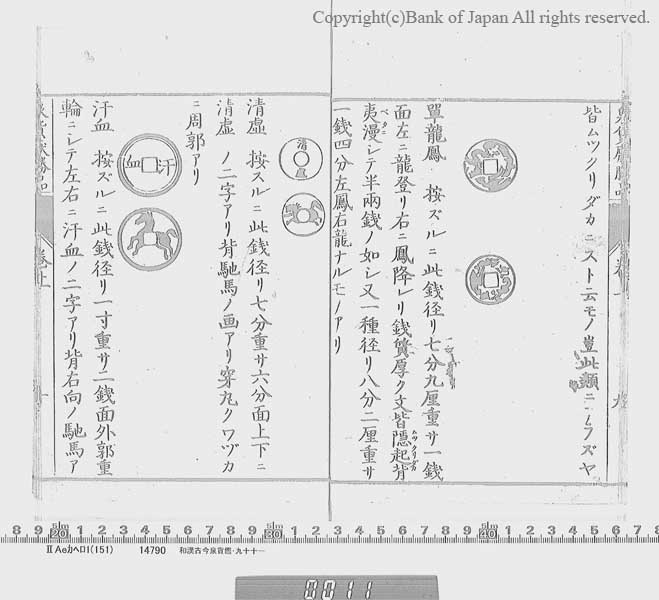 Copyright(c)Bank of Japan All rights reserved.
皆ムツクリダカニスト云モノ豈此類ニアラズヤ
單龍鳳 按ズルニ此銭径リ七分九厘重サ一銭
面左ニ龍登リ右ニ鳳降レリ銭質厚ク文皆隠起背
ムツクリダカ
夷漫レテ半兩銭ノ如シ又一種径リ八分二厘重サ
一銭四分左鳳右龍ナルモノアリ
清虚
清虚 按スルニ此銭径リ七分重サ六分面上下ニ
清虚ノ二字アリ背馳馬ノ画アリ穿丸クワヅカ
ニ周郭アリ
汗血
汗血 按ズルニ此銭径リ一寸重サ二銭面外郭重
輪ニレテ左右ニ汗血ノ二字アリ背右向ノ馳馬ア
8 9 20 1 2 3 4 5 6 7 8 9 30 1 2 3 4 5 6 7 8 9 40 1 2 3 4 5 6 7 8
ⅡAeカヘロ1(151) 14790 和漢古今泉貨鑑・九十十一
0011